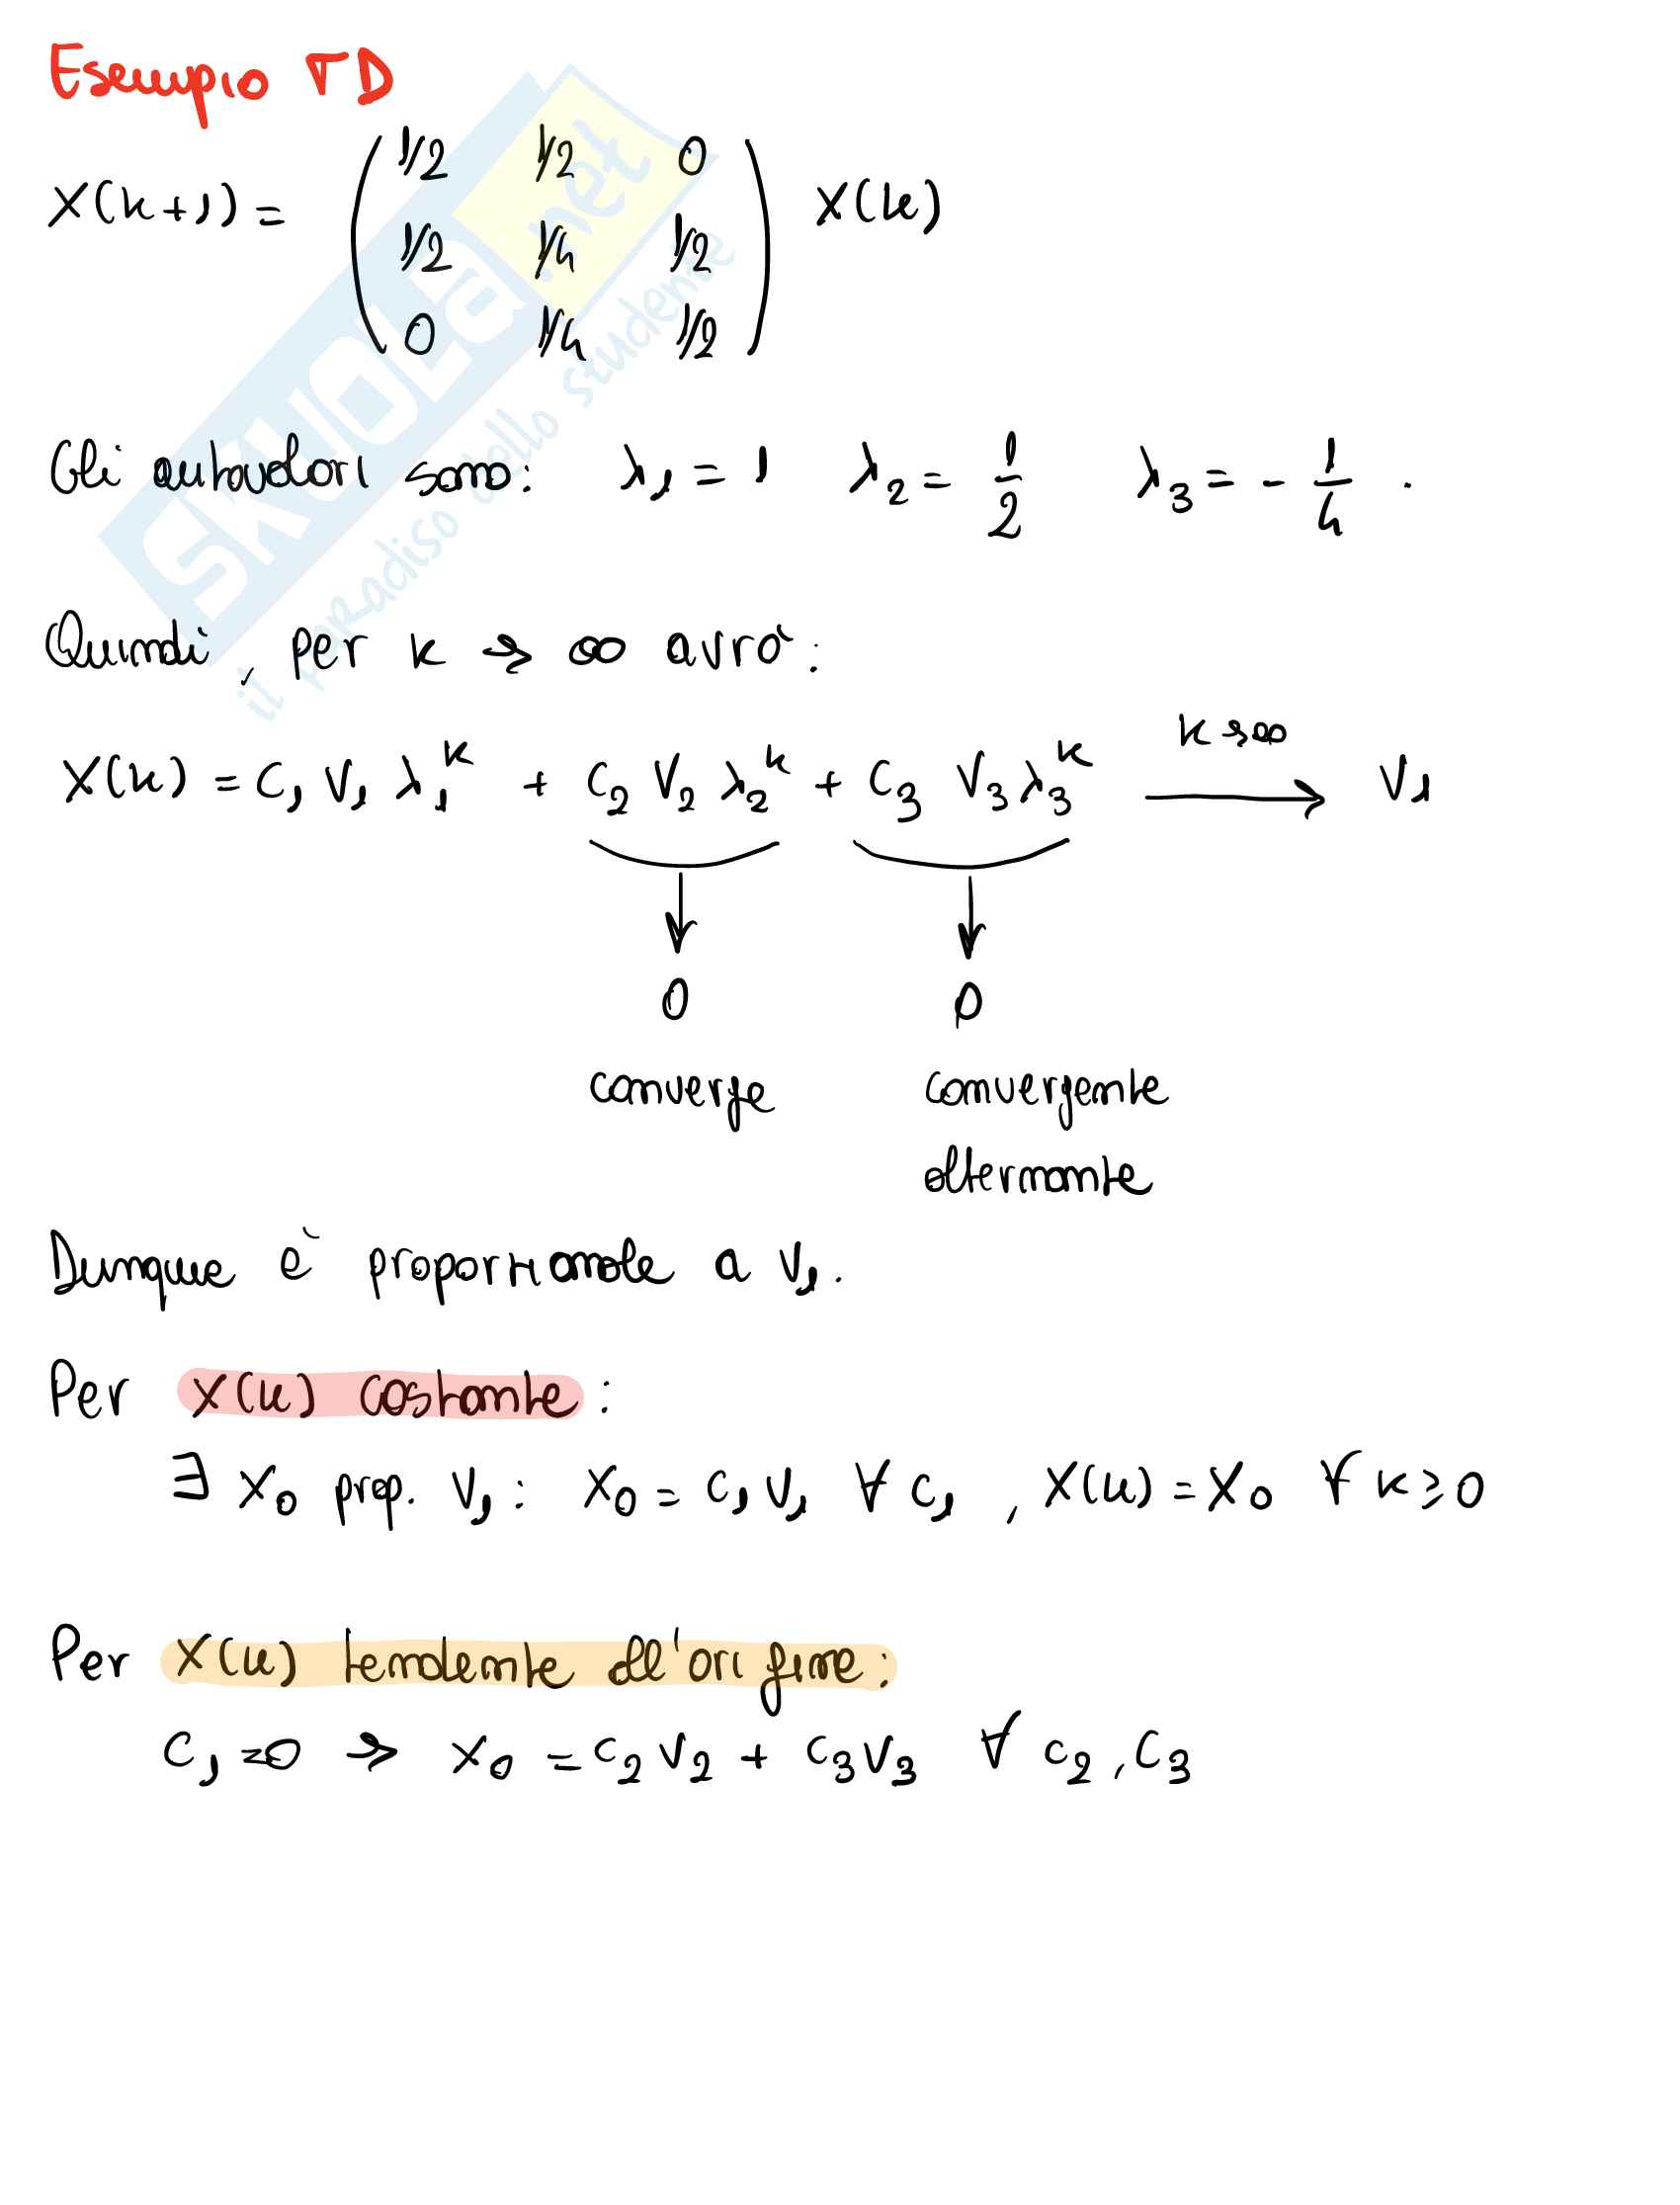 Esempio TD
X(k+1) = ( 1/2 1/2 0
1/2 1/4 1/2
0 1/4 1/2 ) X(k)
Gli autovalori sono: λ1 = 1 λ2 = 1/2 λ3 = - 1/4 .
Quindi, per k → ∞ avrò:
X(k) = C1 V1 λ1^k + C2 V2 λ2^k + C3 V3 λ3^k k→∞ ⟶ V1
0 0
converge convergente
alternante
Dunque è proporzionale a V1.
Per X(k) costante:
∃ X0 prop. V1: X0 = C1 V1 ∀ C1, X(k) = X0 ∀ k ≥ 0
Per X(k) tendente all'origine:
C1 = 0 → X0 = C2 V2 + C3 V3 ∀ C2, C3
SKUOLa.net
il paradiso dello studente